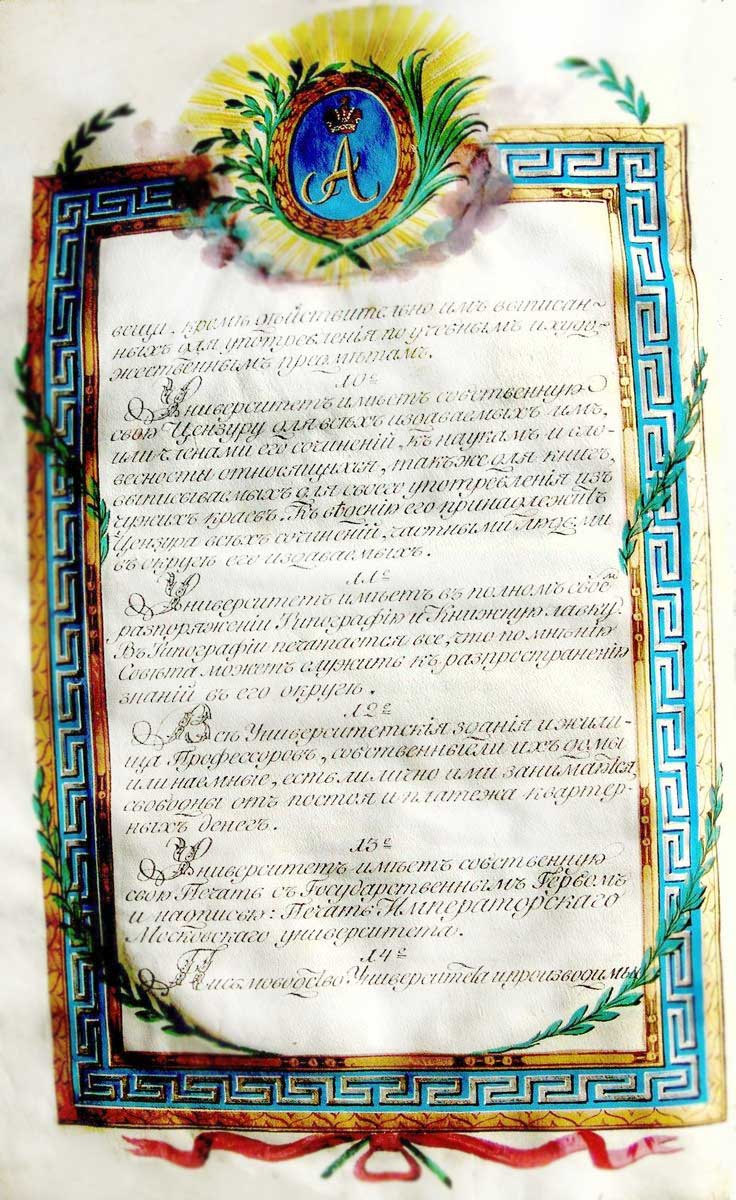 А
вещи, кромѣ дѣйствительно имъ выписан-
ныхъ для употребленія по учебнымъ и худо-
жественнымъ предмѣтамъ.
10е
Университетъ имѣетъ собственную
свою Цензуру для всѣхъ издаваемыхъ имъ,
или членами его сочиненій, къ наукамъ и сло-
весности относящихся, также для книгъ,
выписываемыхъ для своего употребленія изъ
чужихъ краевъ. Къ вѣденію его принадлежитъ
Цензура всѣхъ сочиненій, частными людьми
въ округѣ его издаваемыхъ.
11е
Университетъ имѣетъ въ полномъ своемъ
разпоряженіи Типографію и Книжную лавку.
Въ Типографіи печатается все, что по мнѣнію
Совѣта можетъ служить къ разпространенію
знаній въ его округѣ.
12е
Всѣ Университетскія зданія и жили-
ща Профессоровъ, собственныели ихъ домы
или наемные, естьли лично ими занимаются,
свободны отъ постоя и платежа квартер-
ныхъ денегъ.
13е
Университетъ имѣетъ собственную
свою Печать съ Государственнымъ Гербомъ
и надписью: Печать Императорскаго
Московскаго университета.
14е
Писмоводство Университета и производимыя